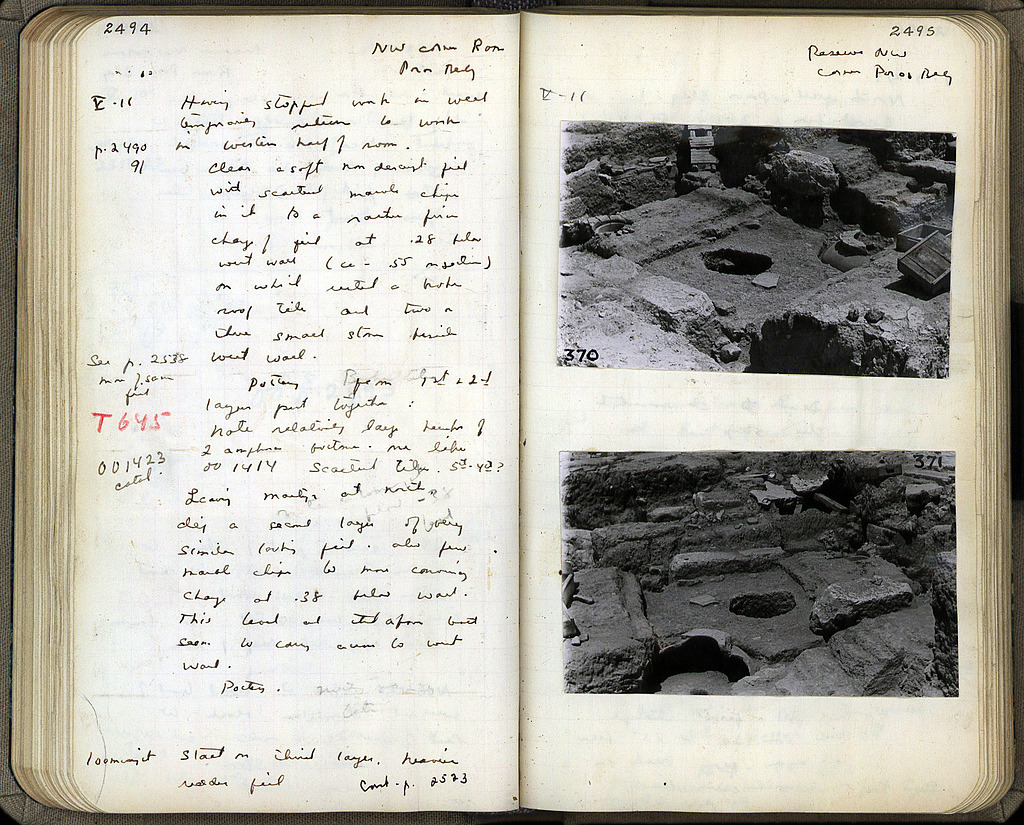 2494
NW corner Room
Poros Bldg
V-11 Having stopped work in west
temporarily return to work
p. 2490 in western half of room.
91 Clear a soft non descript fill
with scattered marble chips
in it to a rather firm
change of fill at .28 below
west wall (ca - .55 m
on which rested a broken
roof tile and two or
three small stones beside
See p. 2538 west wall.
more of same
fill
Pottery from 1st & 2nd
layers put together:
T 645
Note relatively large number of
2 amphora one like
001423 00 1414 Scattered tiles. 5th-4th?
catal.
Leaving at north,
dig a second layer of very
similar looking fill. also few
marble chips to more convincing
change at .38 below wall.
This level at
seems to carry across to west
wall.
Pottery.
Start on third layer, heavier
redder fill Cont. p. 2523
2495
Reserve NW
corner Poros Bldg
V-11
370
371